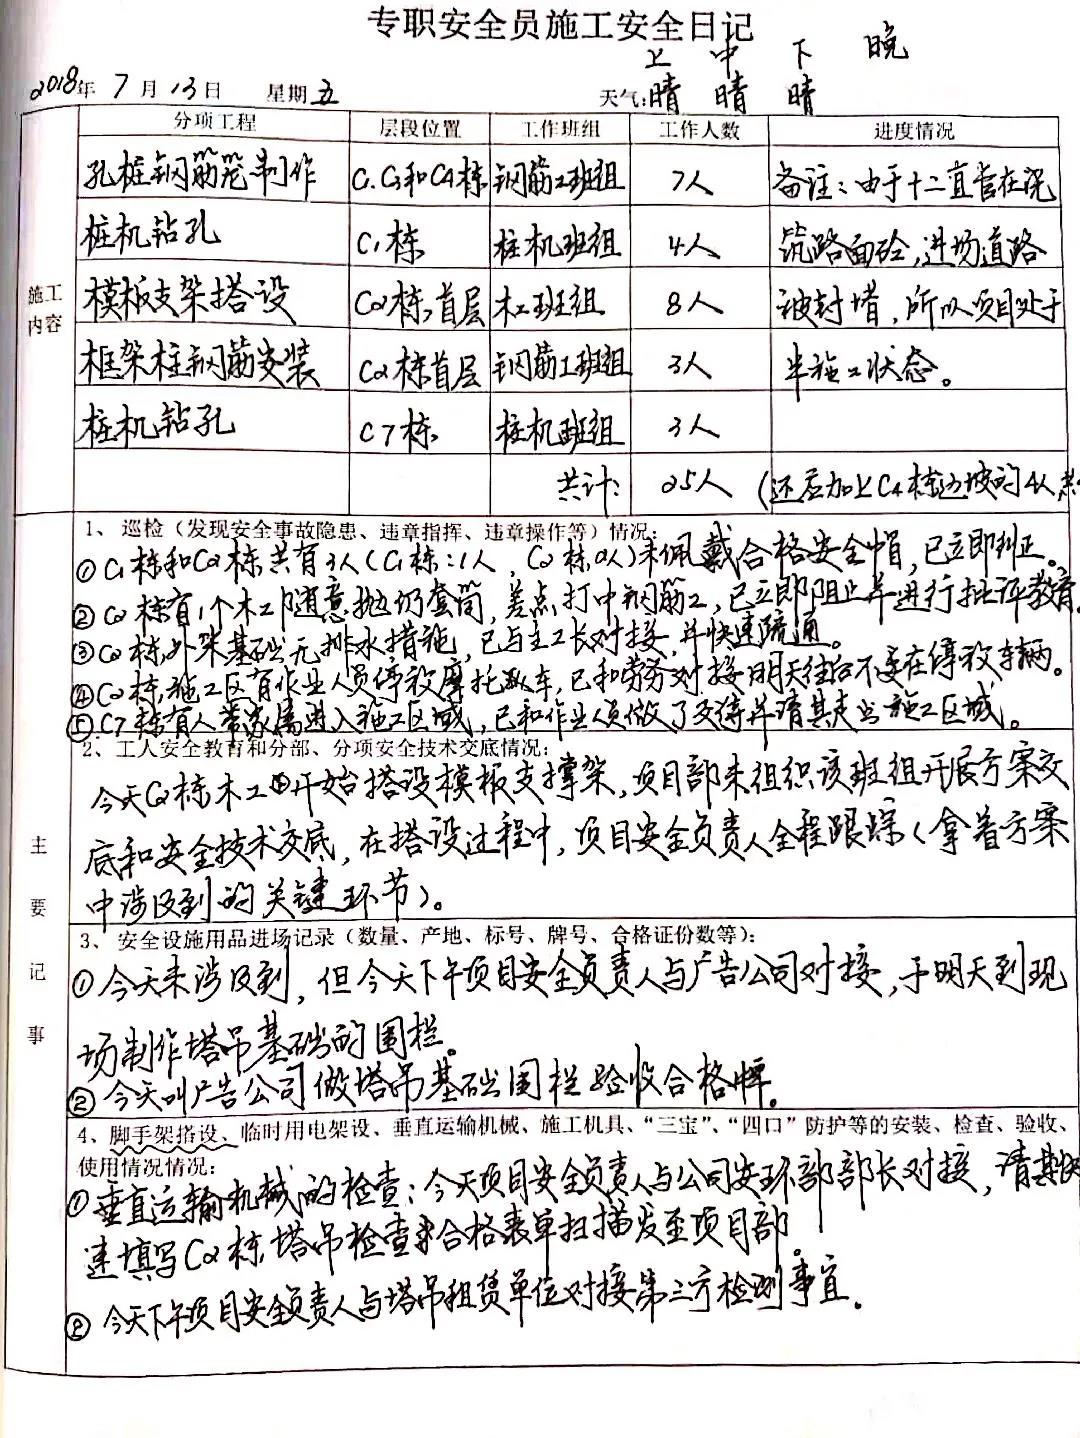 专职安全员施工安全日记
上 中 下 晚
2018年 7月13日 星期五 天气:晴 晴 晴
分项工程 层段位置 工作班组 工作人数 进度情况
孔桩钢筋笼制作 C1.C3和C4栋 钢筋工班组 7人 备注：由于十二直管在浇
桩机钻孔 C1栋 桩机班组 4人 筑路面砼,进场道路
施工内容
模板支架搭设 C2栋,首层 木工班组 8人 被封堵，所以项目处于
框架柱钢筋安装 C2栋首层 钢筋工班组 3人 半施工状态。
桩机钻孔 C7栋 桩机班组 3人
共计: 25人 (还应加上C4栋边坡的4人,共
1、巡检（发现安全事故隐患、违章指挥、违章操作等）情况:
①C1栋和C2栋共有3人(C1栋:1人，C2栋2人)未佩戴合格安全帽,已立即纠正。
②C2栋有1个木工随意抛扔套筒,差点打中钢筋工,已立即阻止并进行批评教育。
③C2栋,外架基础无排水措施,已与主工长对接,并快速疏通。
④C2栋,施工区有作业人员停放摩托车,已和劳务对接明天往后不要在停放车辆。
⑤C7栋有人带家属进入施工区域,已和作业人员做了交待并请其走出施工区域。
2、工人安全教育和分部、分项安全技术交底情况:
今天C2栋木工开始搭设模板支撑架,项目部未组织该班组开展方案交
底和安全技术交底,在搭设过程中,项目安全负责人全程跟踪(拿着方案
中涉及到的关键环节)。
主要记事
3、安全设施用品进场记录（数量、产地、标号、牌号、合格证份数等）:
①今天未涉及到,但今天下午项目安全负责人与广告公司对接,于明天到现
场制作塔吊基础的围栏。
②今天叫广告公司做塔吊基础围栏验收合格牌。
4、脚手架搭设、临时用电架设、垂直运输机械、施工机具、“三宝”、“四口”防护等的安装、检查、验收、
使用情况情况:
①垂直运输机械的检查:今天项目安全负责人与公司安环部部长对接,请其快
速填写C2栋,塔吊检查合格表单扫描发至项目部。
②今天下午项目安全负责人与塔吊租赁单位对接第三方检测事宜。